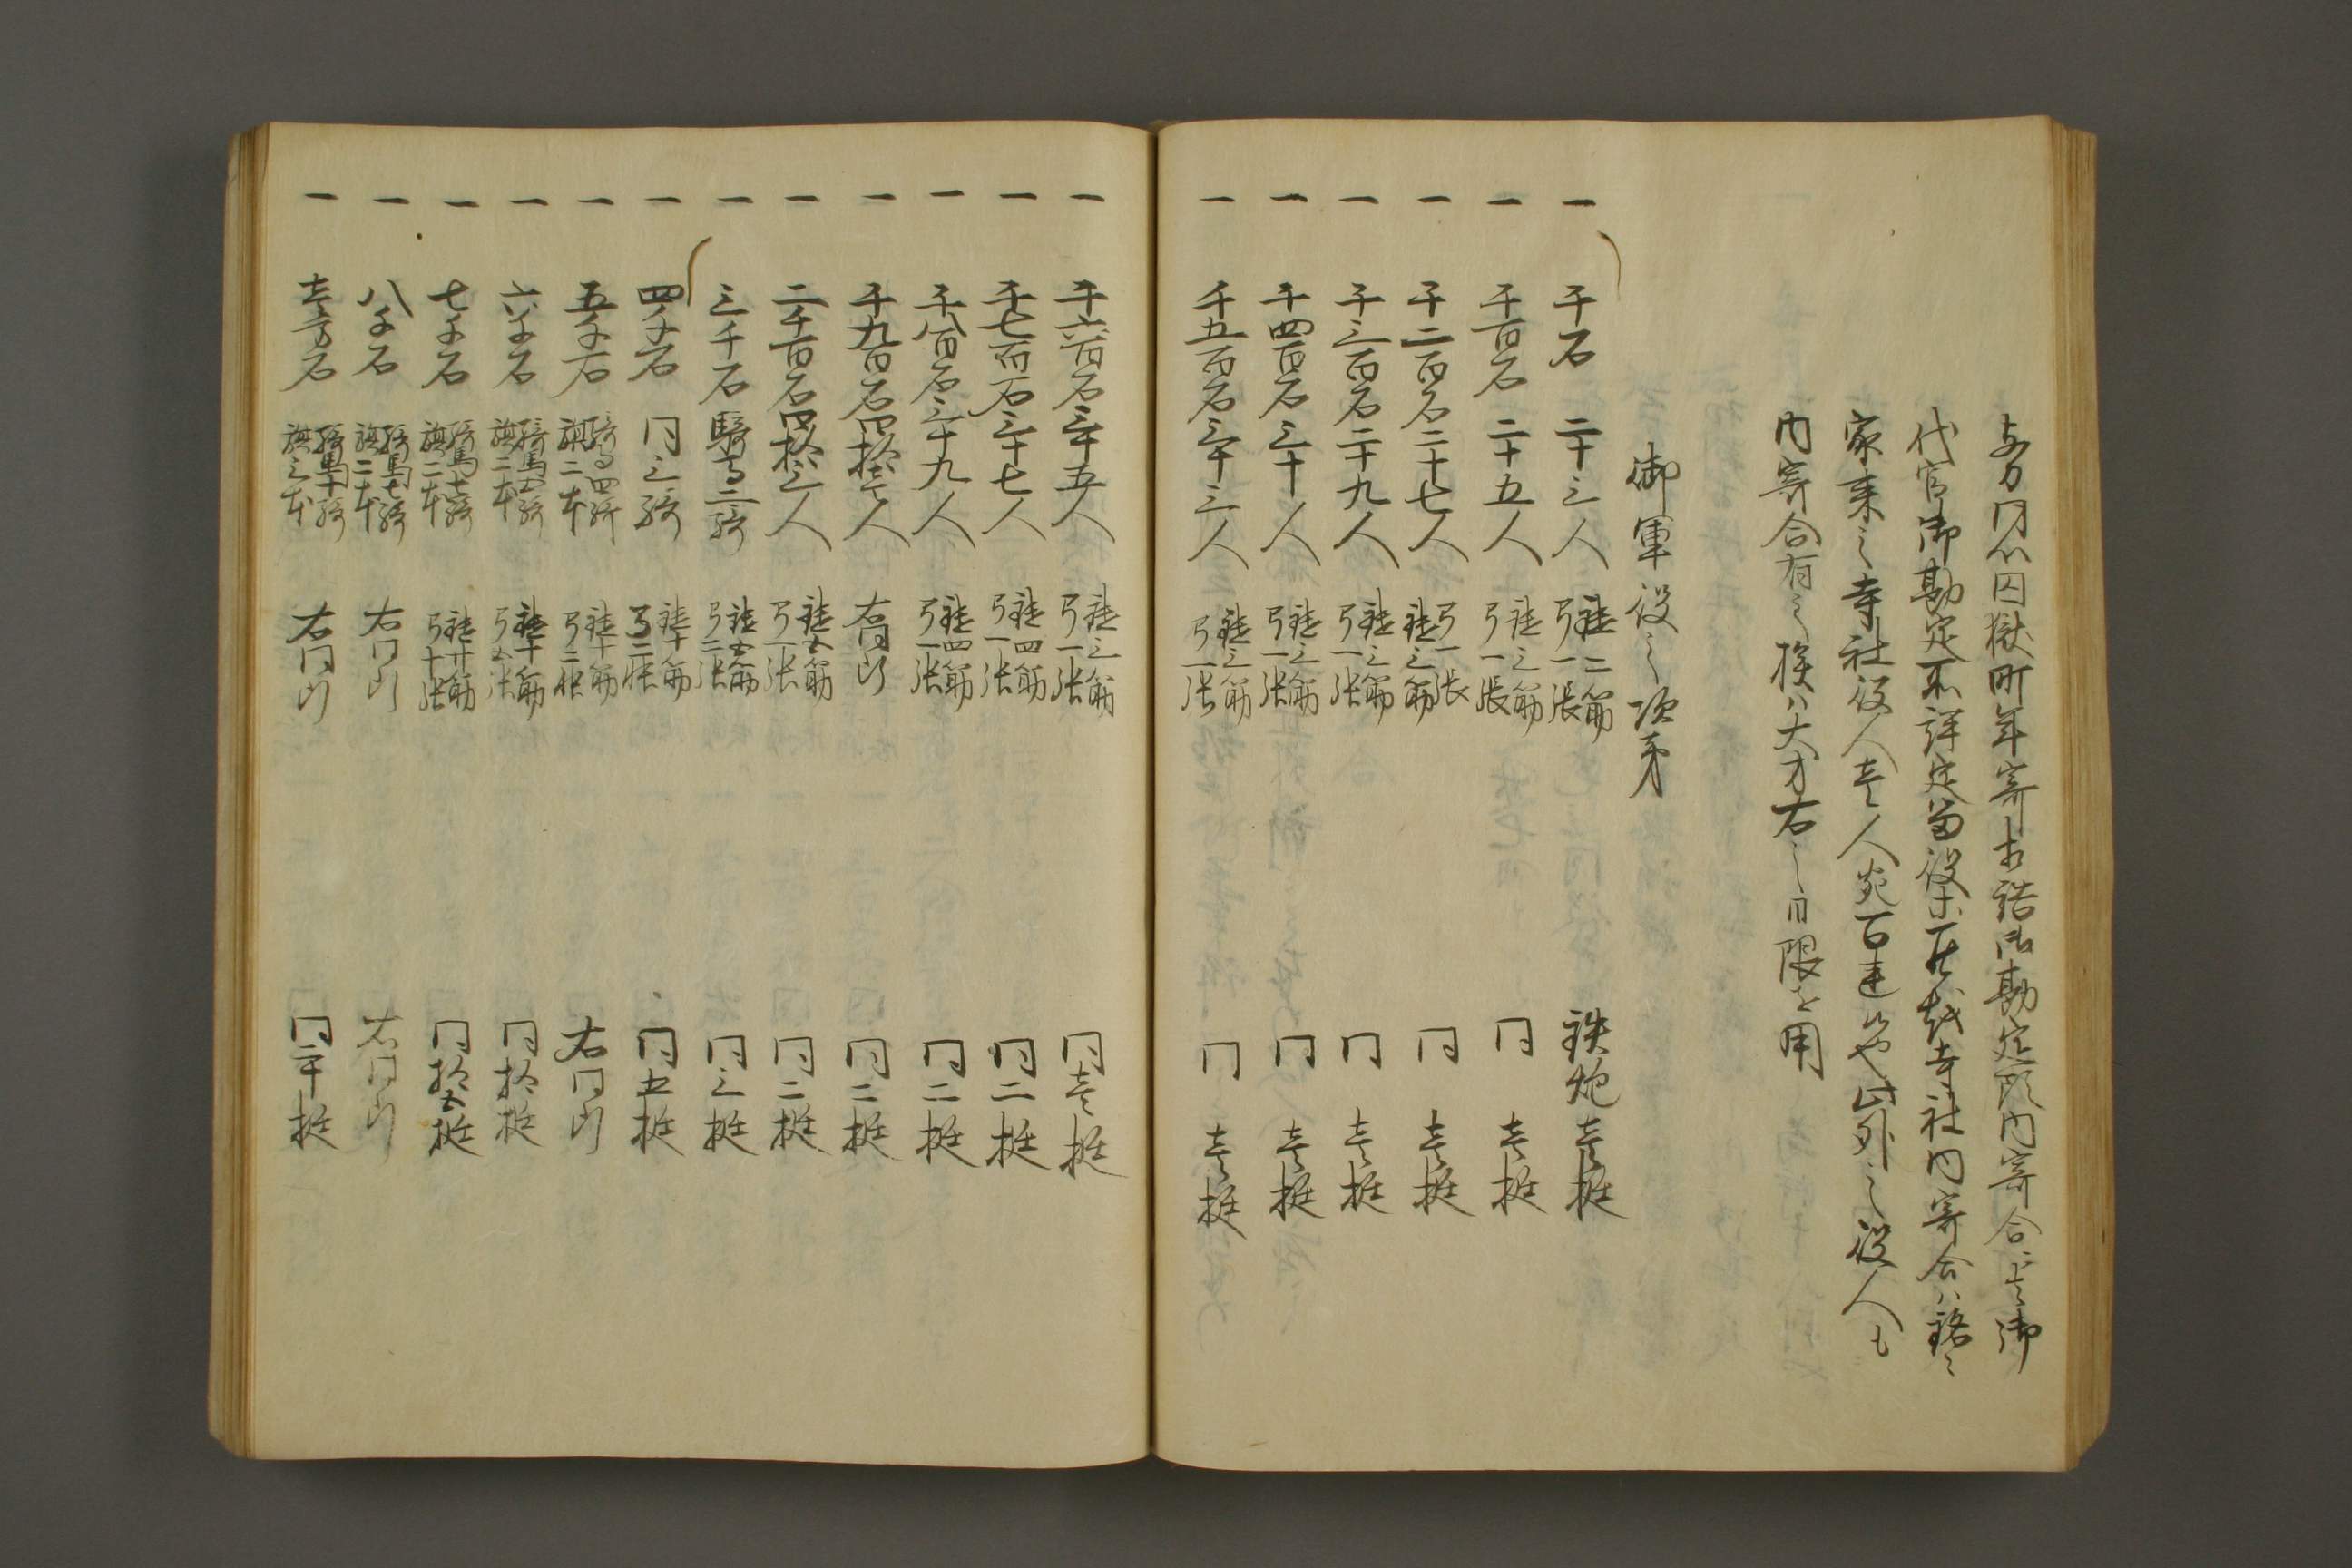 与力同心囚獄町年寄知諸御勘定所内寄合ニ其御
代官御勘定不詳定留役共其外寺社内寄合ハ銘々
家来之寺社役人壱人宛百連候や此外之役人も
内寄合有之候ハ大才右之日限を用
御軍役之次第
一 千石 二十三人 鑓二筋 弓一張 鉄炮壱挺
一 千百石 二十五人 鑓三筋 弓一張 同 壱挺
一 千二百石二十七人 弓一張 鑓三筋 同 壱挺
一 千三百石二十九人 鑓三筋 弓一張 同 壱挺
一 千四百石三十人 鑓三筋 弓一張 同 壱挺
一 千五百石三十三人 鑓三筋 弓一張 同 壱挺
一 千六百石三十五人 鑓三筋 弓一張 同壱挺
一 千七百石三十七人 鑓四筋 弓一張 同二挺
一 千八百石三十九人 鑓四筋 弓一張 同二挺
一 千九百石四拾壱人 右同断 同二挺
一 二千百石四拾三人 鑓五筋 弓一張 同二挺
一 三千石 騎馬二騎 鑓五筋 弓二張 同三挺
一 四千石 同三騎 鑓十筋 弓二張 同五挺
一 五千石 騎馬四騎 旗二本 鑓十筋 弓二張 右同断
一 六千石 騎馬五騎 旗二本 鑓十筋 弓五張 同拾挺
一 七千石 騎馬七騎 旗二本 鑓廿筋 弓十張 同拾五挺
一 八千石 騎馬七騎 旗二本 右同断 右同断
一 壱万石 騎馬十騎 旗三本 右同断 同二十挺